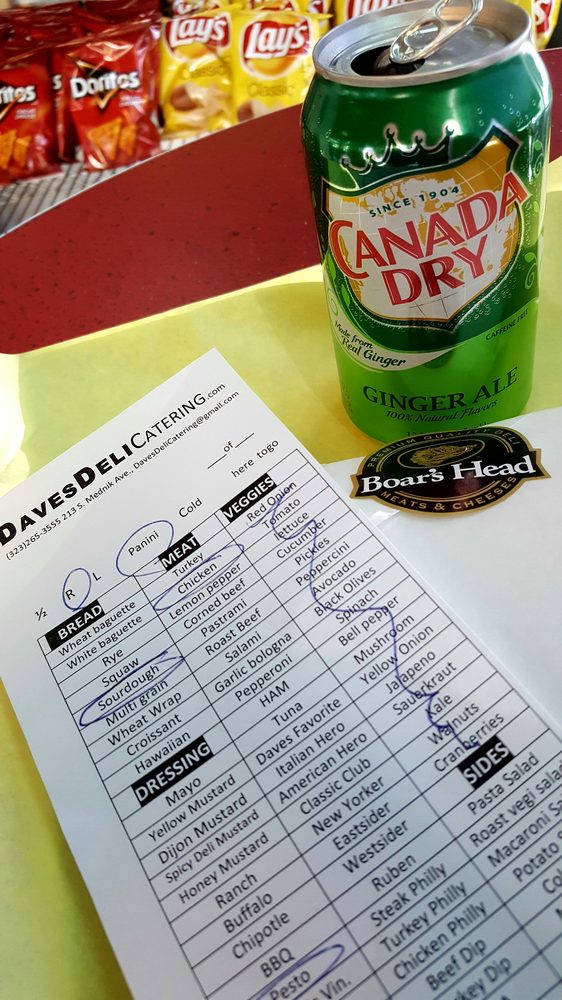 Doritos
Doritos
Lay's
Classic
Lay's
Classic
SINCE 1904
CANADA
DRY
CAFFEINE FREE
Made from
Real Ginger
GINGER ALE
100% Natural Flavors
PREMIUM QUALITY DELI
Boar's Head
MEATS & CHEESES
DAVESDELICATERING.com
(323)265-3555 213 S. Mednik Ave., DavesDeliCatering@gmail.com
___of___
½ R L Panini Cold here togo
BREAD
Wheat baguette
White baguette
Rye
Squaw
Sourdough
Multi grain
Wheat Wrap
Croissant
Hawaiian
DRESSING
Mayo
Yellow Mustard
Dijon Mustard
Spicy Deli Mustard
Honey Mustard
Ranch
Buffalo
Chipotle
BBQ
Pesto
Vin.
MEAT
Turkey
Chicken
Lemon pepper
Corned beef
Pastrami
Roast Beef
Salami
Garlic bologna
Pepperoni
HAM
Tuna
Daves Favorite
Italian Hero
American Hero
Classic Club
New Yorker
Eastsider
Westsider
Ruben
Steak Philly
Turkey Philly
Chicken Philly
Beef Dip
Dip
VEGGIES
Red Onion
Tomato
lettuce
Cucumber
Pickles
Peppercini
Avocado
Black Olives
Spinach
Bell pepper
Mushroom
Yellow Onion
Jalapeno
Sauerkraut
Walnuts
Cranberries
SIDES
Pasta Salad
Roast vegi salad
Macaroni
Potato